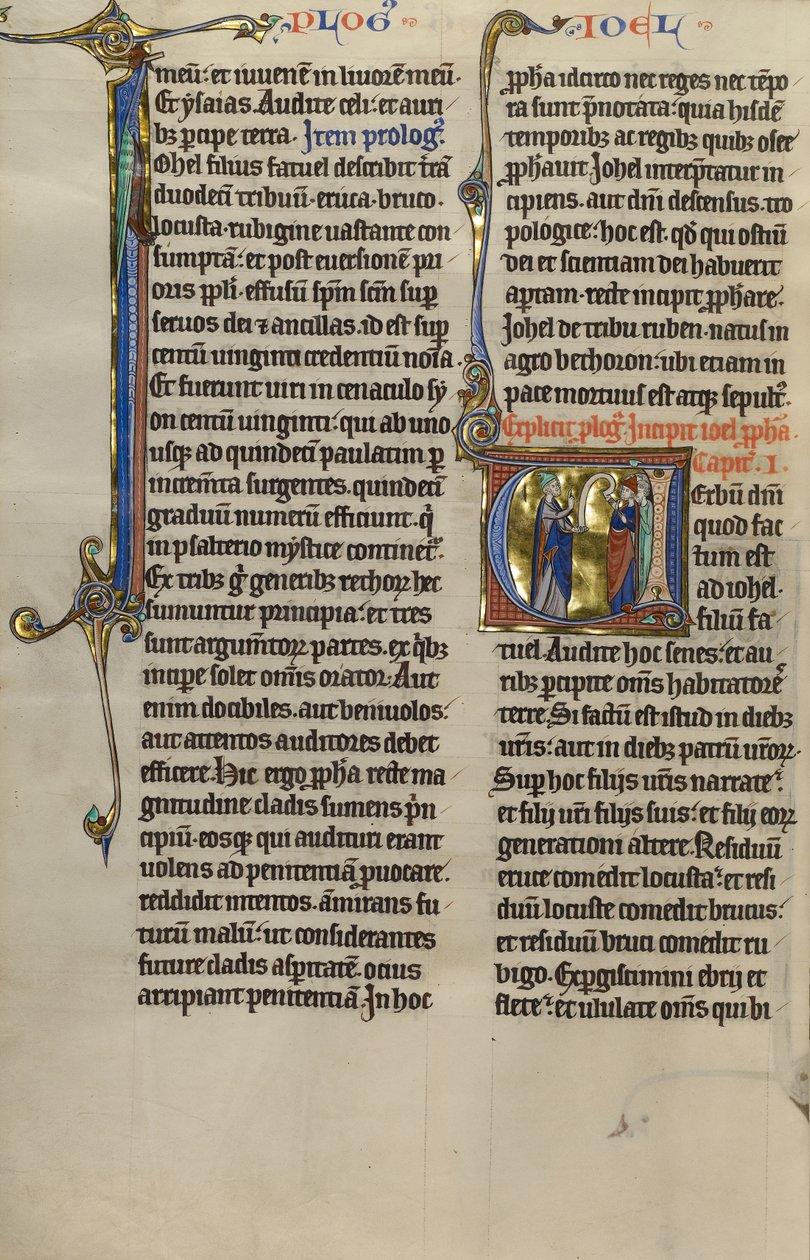 PLOG᷒
IOEL
meū. et iuuenē in liuorē meū.
Et ysaias. Audite celi. et auri
bȝ ꝑcipe terra. Item prolog᷒.
Ohel filius fatuel describit t̄rā
duodecī tribuū. eruca. bruco.
locusta. rubigine uastante con
sumptā. et post euersionē pri
oris ppl̄i. effusū sp̄m sc̄m suꝑ
seruos dei ⁊ ancillas. id est suꝑ
centū uiginti credentiū noīa.
Et fuerunt uiri in cenaculo sy
on centū uiginti. qui ab uno
usqȝ ad quindecī paulatim ꝑ
increm̄ta surgentes. quindecī
graduū numerū efficiunt. q̇
in psalterio mystice continet᷑.
Ex tribȝ g̊ generibȝ rethoꝝ hec
sumuntur principia. et tres
sunt argum̄toꝝ partes. ex q̇bȝ
incipe solet om̄is orator. Aut
enim dociles. aut beniuolos.
aut attentos auditores debet
efficere. Hic ergo ꝓph̄a recte ma
gnitudine cladis sumens p̄n
cipiū. eosqȝ qui audituri erant
uolens ad penitentiā ꝓuocare.
reddidit intentos. āmirans fu
turū malū. ut considerantes
future cladis asꝑitatē. ocius
arripiant penitentiā. In hoc
ꝓph̄a idcirco nec reges nec tēpo
ra sunt p̄notata. quia hisdē
temporibȝ ac regibȝ quibȝ osee
ꝓph̄auit. Johel interp̄tatur in
cipiens. aut dn̄i descensus. tro
pologice. hoc est. qd̄ qui ostiū
dei et scientiam dei habuerit
aꝑtam. recte incipit ꝓph̄are.
Johel de tribu ruben. natus in
agro bethoron. ubi etiam in
pace mortuus est atqȝ sepult᷒.
Explicit ꝓlog᷒. Incipit ioel ꝓph̄a.
Capit᷒. I.
Erbū dn̄i
quod fac
tum est
ad iohel.
filiū fa
tuel. Audite hoc senes. et au
ribȝ ꝑcipite om̄s habitatorē
terre. Si factū est istud in diebȝ
ur̄is. aut in diebȝ patrū ur̄oꝝ.
Suꝑ hoc filijs ur̄is narrate.
et filij ur̄i filijs suis. et filij eoꝝ
generationi altere. Residuū
eruce comedit locusta. et resi
duū locuste comedit brucus.
et residuū bruci comedit ru
bigo. Exꝑgiscimini ebrij et
flete. et ululate om̄s qui bi